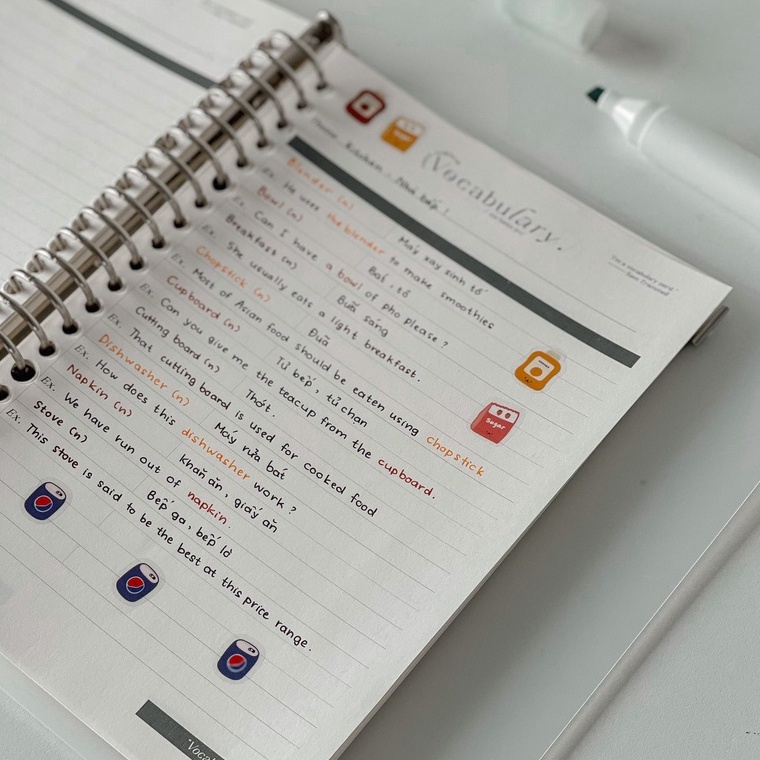 (Vocabulary.)
Kitchen - Nhà bếp!
"I'm a vocabulary nerd."
Blender (n) Máy xay sinh tố
Ex. He uses the blender to make smoothies
Bowl (n) Bát, tô
Ex. Can I have a bowl of pho please?
Breakfast (n) Buổi sáng
Ex. She usually eats a light breakfast.
Chopstick (n) Đũa
Ex. Most of Asian food should be eaten using chopstick
Cupboard (n) Tủ bếp, tủ chạn
Ex. Can you give me the teacup from the cupboard.
Cutting board (n) Thớt.
Ex. That cutting board is used for cooked food
Dishwasher (n) Máy rửa bát
Ex. How does this dishwasher work?
Napkin (n) Khăn ăn, giấy ăn
Ex. We have run out of napkin.
Stove (n) Bếp ga, bếp lò
Ex. This stove is said to be the best at this price range.
Sugar